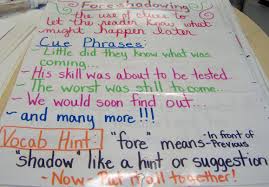 Foreshadowing
the use of clues to
let the reader know what
might happen later
Cue Phrases:
- Little did they know what was
coming...
- His skill was about to be tested...
- The worst was still to come...
- We would soon find out...
- and many more!!!
Vocab Hint: "fore" means -In front of
-Previous
"shadow" like a hint or suggestion
- Now - Put it all together!